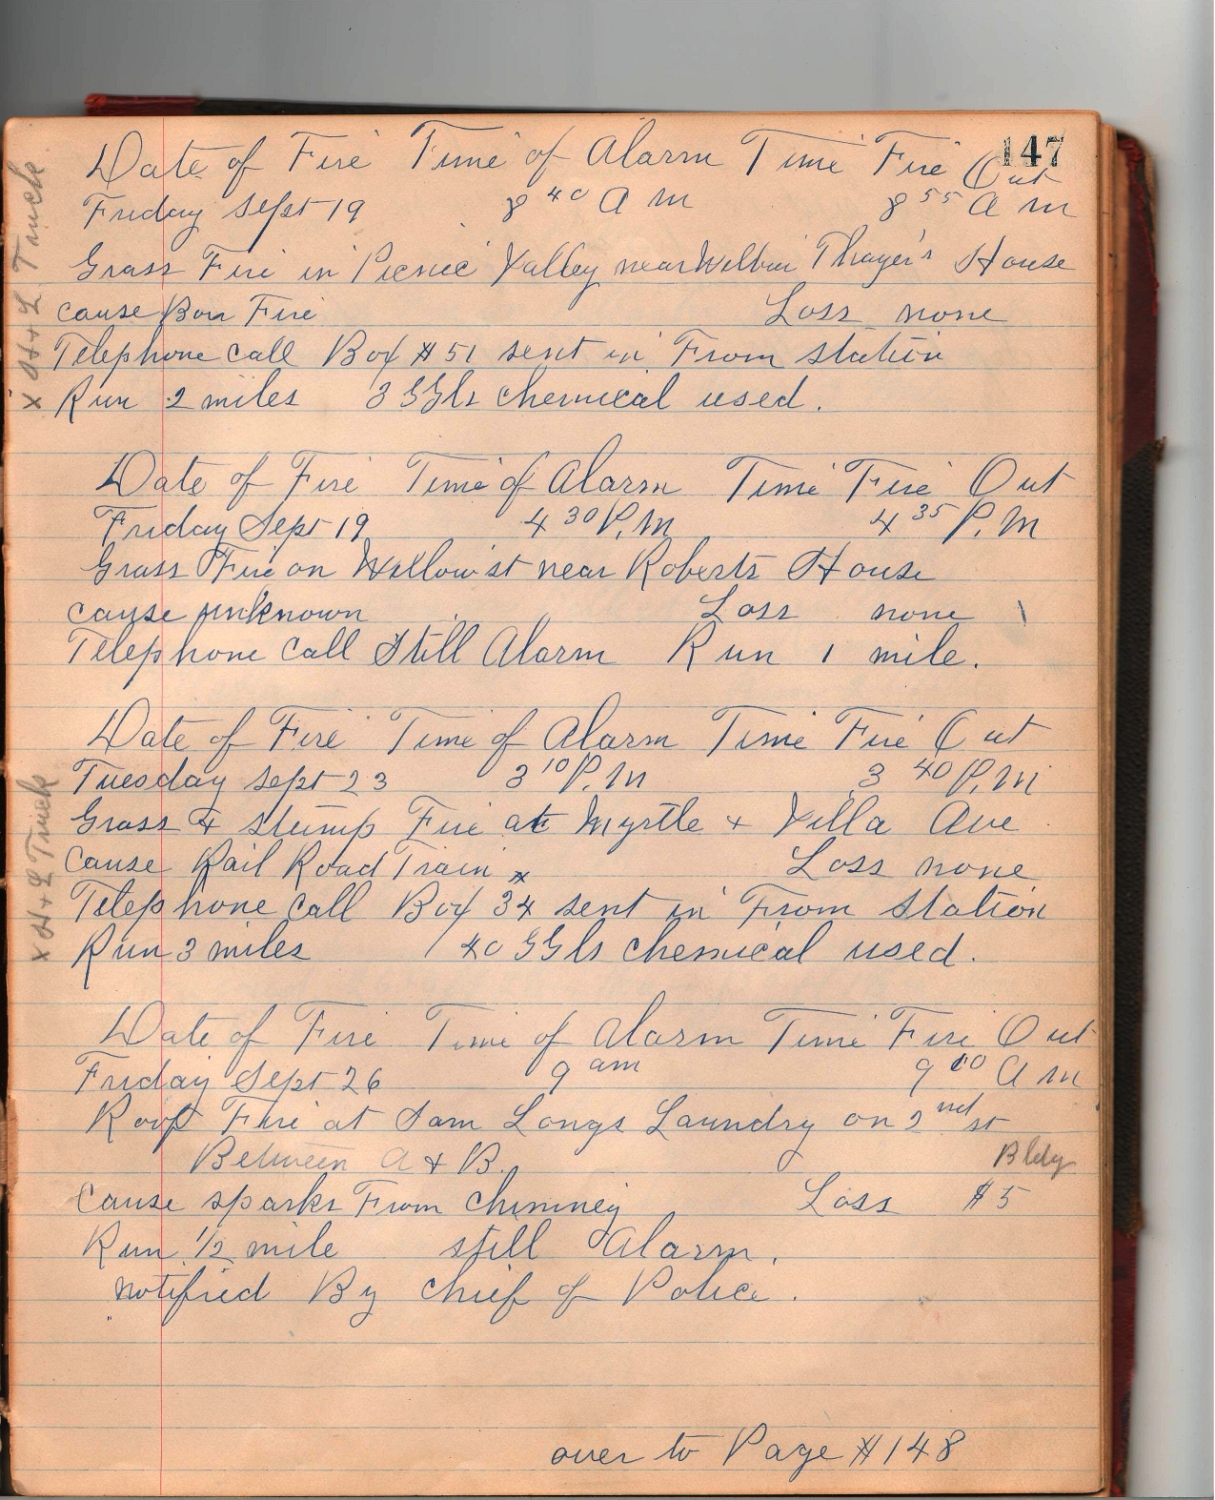 147
Date of Fire Time of Alarm Time Fire Out
Friday Sept 19 8 40 A M 8 55 A M
Grass Fire in Picnic Valley near Wilbur Thayer's House
cause Bon Fire Loss none
Telephone call Box #51 sent in From station
Run 2 miles 3 GGls chemical used.
x H + L Truck
Date of Fire Time of Alarm Time Fire Out
Friday Sept 19 4 30 P.M 4 35 P.M
Grass Fire on Willow st near Roberts House
cause unknown Loss none
Telephone call Still Alarm Run 1 mile.
Date of Fire Time of Alarm Time Fire Out
Tuesday Sept 23 3 10 P.M 3 40 P.M
Grass + stump Fire at Myrtle + Villa Ave
cause Rail Road Train x Loss none
Telephone call Box 34 sent in From station
Run 3 miles 40 GGls chemical used.
x H + L Truck
Date of Fire Time of Alarm Time Fire Out
Friday Sept 26 9 am 9 10 A M
Roof Fire at Sam Longs Laundry on 2nd st
Between A + B. Bldg
Cause sparks From chimney Loss $5
Run 1/2 mile still Alarm.
notified By chief of Police.
over to Page #148